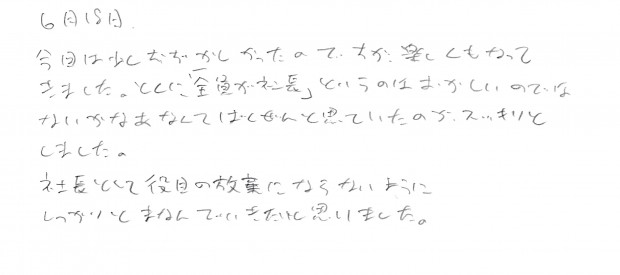 6月18日.
今回は少しむずかしかったのですが、楽しくもなって
きました。とくに「全員が社長」というのはおかしいのでは
ないかなあなんてばくぜんと思ていたのが、スッキリと
しました。
社長として役目の放棄にならないように
しっかりとまなんでいきたいと思いました。